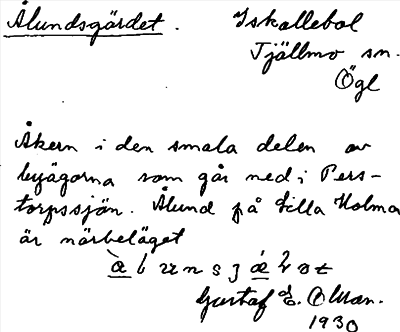 Ålundsgärdet. Iskallebol
Tjällmo sn.
Ögl
Åkern i den smala delen av
byägorna som går ned i Pers-
torpssjön. Ålund på Lilla Holma
är närbeläget
Gustaf E. Olsson.
1930